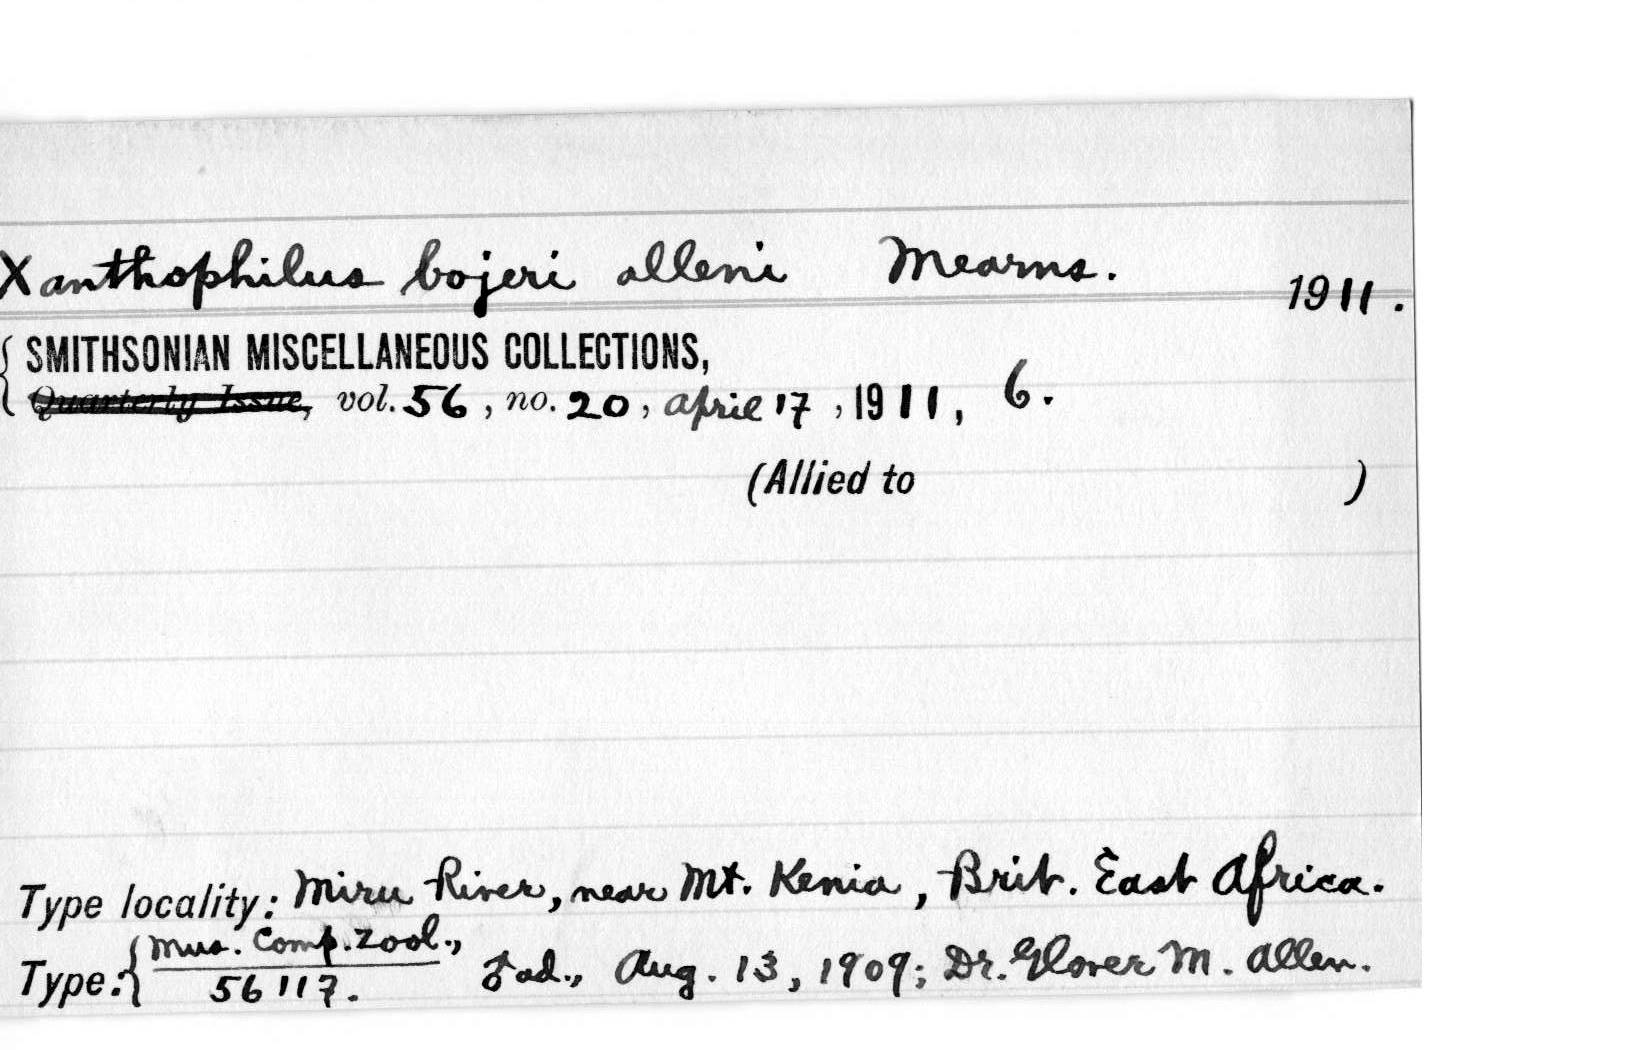 Xanthophilus bojeri alleni Mearns.
1911.
SMITHSONIAN MISCELLANEOUS COLLECTIONS,
Quarterly Issue, vol. 56, no. 20, April 17, 1911, 6.
(Allied to )
Type locality: Miru River, near Mt. Kenia, Brit. East Africa.
Type: { Mus. Comp. Zool.,
56117. ♂ ad., Aug. 13, 1909; Dr. Glover M. Allen.